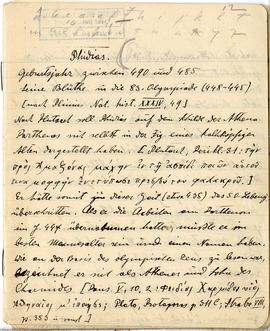 Phidias.
Geburtsjahr zwischen 490 und 485.
Seine Blüthe in die 83. Olympiade (448-445)
[nach Plinius Nat. hist. XXXIV, 49]
Nach Plutarch soll Phidias auf dem Schild der Athena
Parthenos sich selbst in der Fig. eines kahlköpfigen
Alten dargestellt haben. Plutarch, Perikl. 31: τὴν
πρὸς Ἀμαζόνας μάχην ἐν τῇ ἀσπίδι ποιῶν αὑτοῦ
τινα μορφὴν ἐνετύπωσε πρεσβύτου φαλακροῦ.]
Er hätte somit in dieser Zeit (etwa 438) das 50. Lebensj.
überschritten. Als er die Arbeiten am Parthenon
im J. 447 übernommen hatte, musste er im
besten Mannesalter sein und einen Namen haben.
als Athener und Sohn des
Charmides [Paus. V, 10, 2: Φειδίας Χαρμίδου υἱὸς
Ἀθηναῖος μ' ἐποίησε; Plato, Protagoras p. 311 C; Strabo VIII
p. 353 u. sonst]